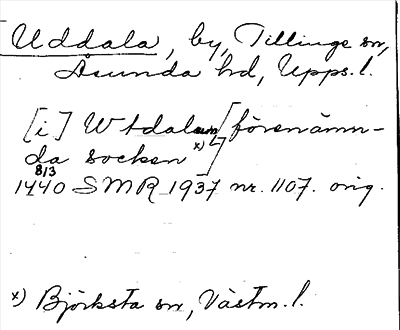 Uddala, by, Tillinge sn,
Åsunda hd, Upps. l.
[i] Wtdalum [förenämn-
da socken x)]
8/3
1440 SMR 1937 nr. 1107. orig.
x) Björksta sn, Västm. l.